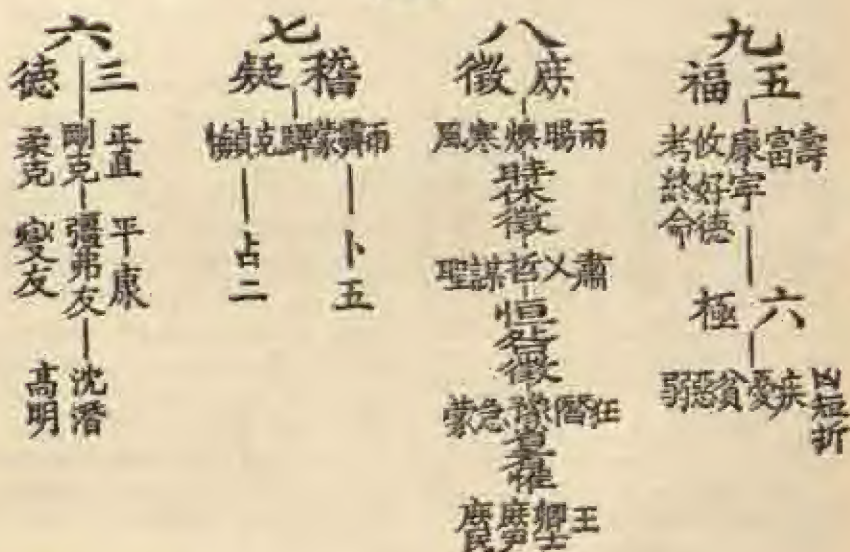 九
五福
壽 富 康寧 攸好德 考終命
六極
凶短折 疾 憂 貧 惡 弱
八
庶徵
雨 暘 燠 寒 風
休徵
肅 乂 哲 謀 聖
恒
咎徵
狂 僭 豫 急 蒙
王 卿士 庶尹 庶民
七
稽疑
雨 霽 蒙 驛 克 貞 悔
卜五
占二
六
三德
正直 剛克 柔克
平康 彊弗友 燮友
沈潛 高明